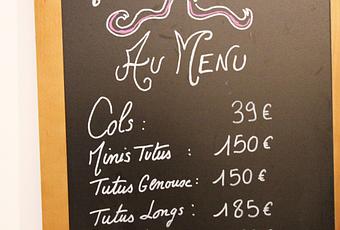 Au Menu
Cols : 39 €
Minis Tutus : 150 €
Tutus Genoux : 150 €
Tutus Longs : 185 €